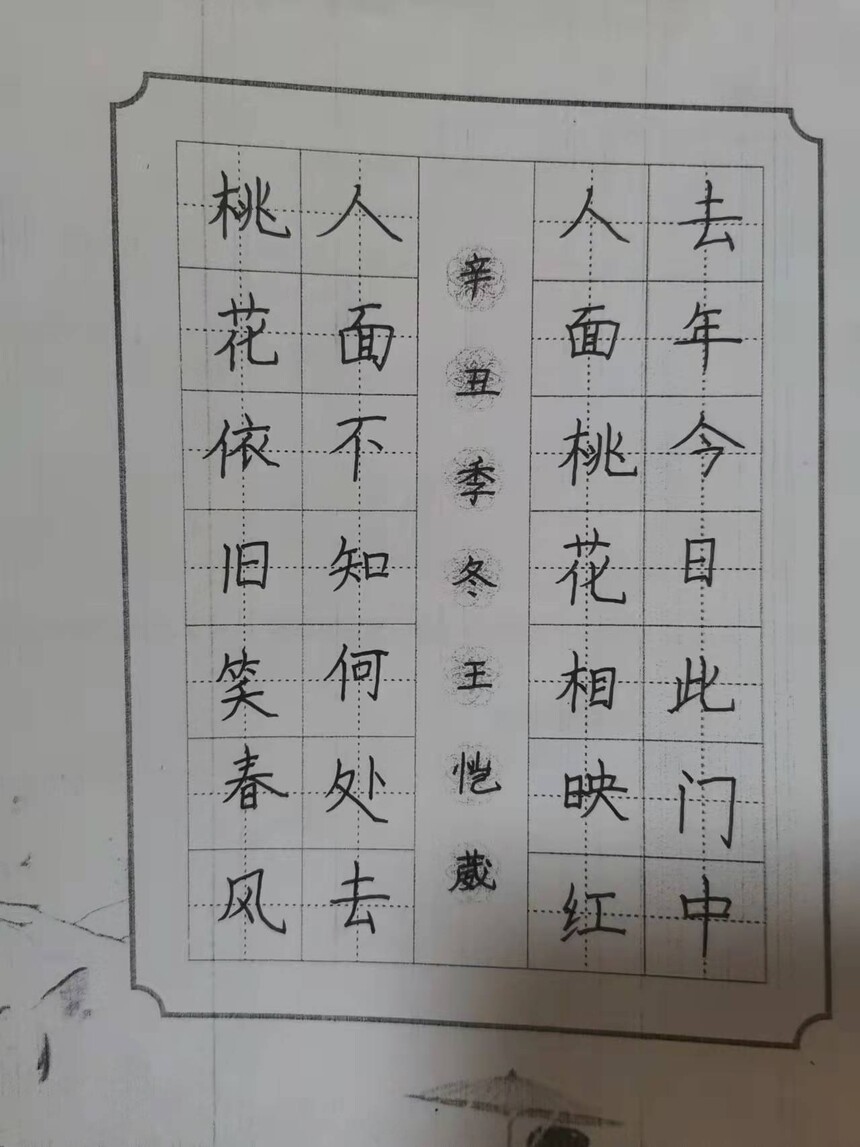 去年今日此门中
人面桃花相映红
辛丑季冬王恺葳
人面不知何处去
桃花依旧笑春风